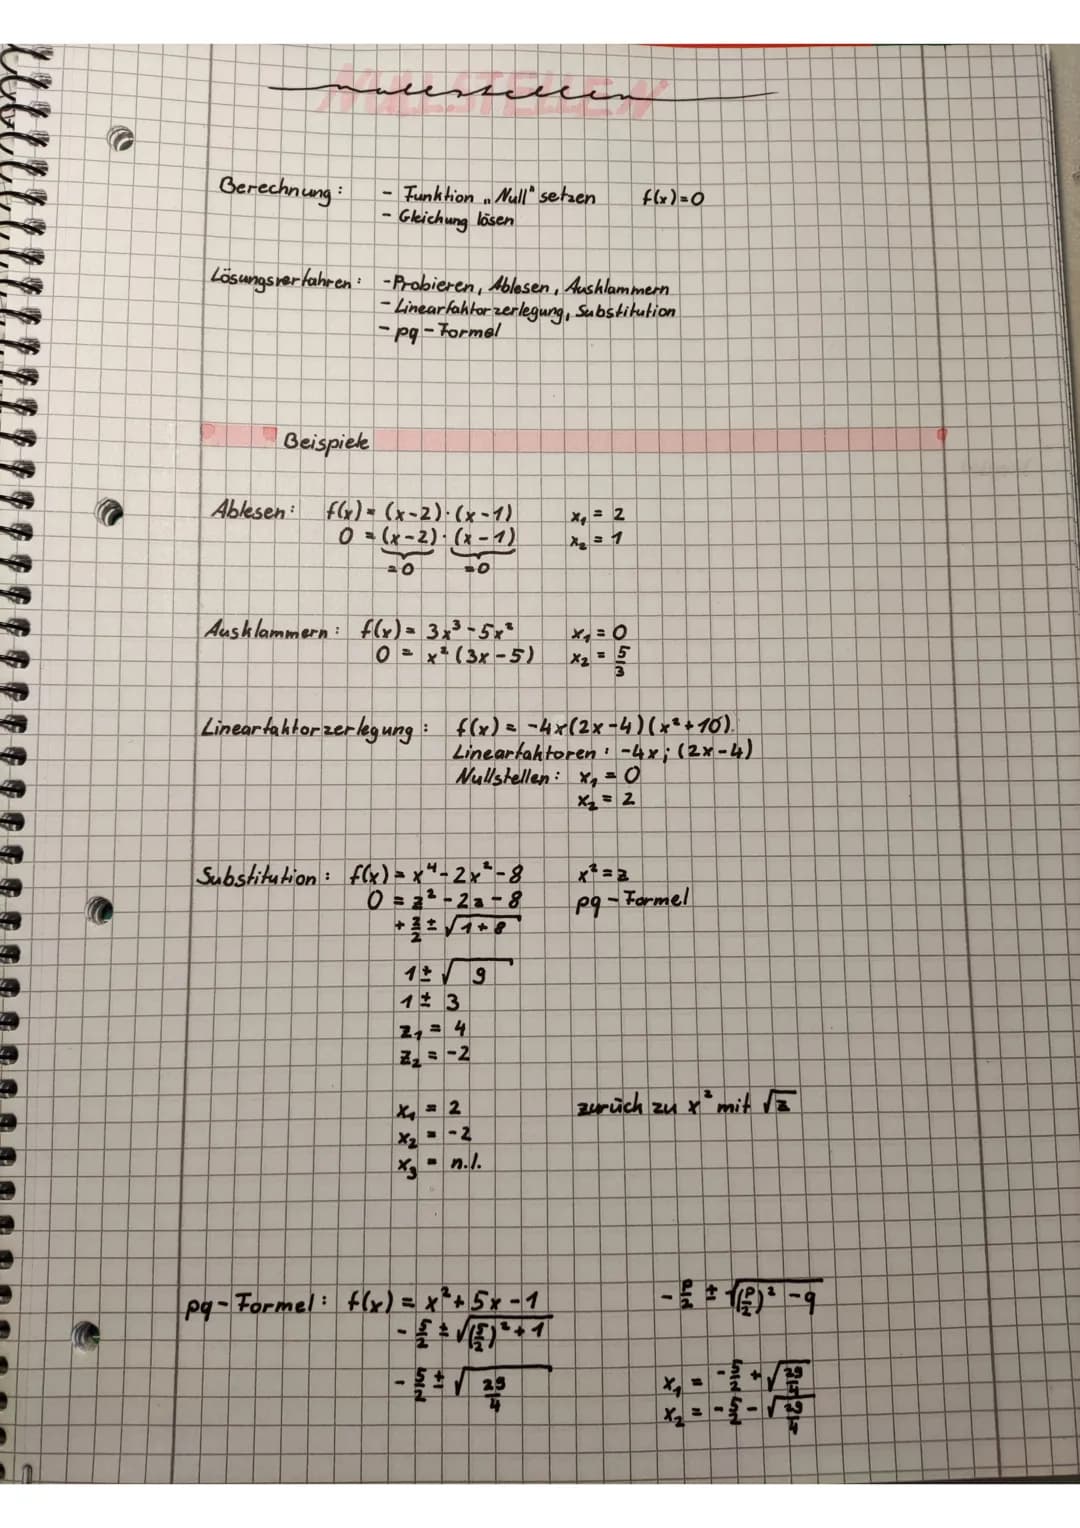 NULLSTELLEN
nullstellen
Berechnung: - Funktion „Null" setzen f(x)=0
- Gleichung lösen
Lösungsverfahren: - Probieren, Ablesen, Ausklammern
- Linearfaktorzerlegung, Substitution
- pq-Formel
Beispiele
Ablesen: f(x) = (x-2)·(x-1) x₁ = 2
0 = (x-2)·(x-1) x₂ = 1
=0 =0
Ausklammern: f(x) = 3x³-5x² x₁ = 0
0 = x²(3x-5) x₂ = 5/3
Linearfaktorzerlegung: f(x) = -4x(2x-4)(x²+10)
Linearfaktoren: -4x; (2x-4)
Nullstellen: x₁ = 0
x₂ = 2
Substitution: f(x) = x⁴-2x²-8 x²=z
0 = z²-2z-8 pq-Formel
+ 2/2 ± √1+8
1 ± √9
1 ± 3
z₁ = 4
z₂ = -2
x₁ = 2 zurück zu x² mit √z
x₂ = -2
x₃ = n.l.
pq-Formel: f(x) = x²+5x-1 - p/2 ± √(p/2)²-q
- 5/2 ± √(5/2)²+1
- 5/2 ± √29/4 x₁ = -5/2 + √29/4
x₂ = -5/2 - √29/4